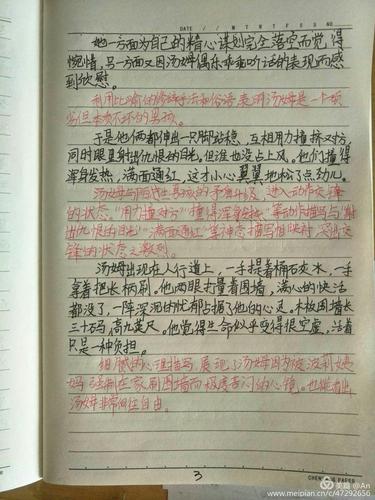 DATE / / M T W T F S S NO.
她一方面为自己的精心谋划完全落空而觉得
惋惜,另一方面又因汤姆偶尔乖乖听话的表现而感
到欣慰。
利用比喻的修辞手法和俗语表明汤姆是一个顽
劣但本质不坏的男孩。
于是他俩都伸出一只脚站稳,互相用力撞挤对方,
同时眼里射出仇恨的目光,但谁也没占上风。他们撞得
浑身发热,满面通红,这才小心翼翼地松了点劲儿。
汤姆与陌生男孩的矛盾升级,进入动作交锋
的状态。“用力撞对方”“撞得浑身发热”等动作描写与“射
出仇恨的目光”“满面通红”等神态描写相映衬,突出交
锋的状态之激烈。
汤姆出现在人行道上,一手提着桶石灰水,一手
拿着把长柄刷。他两眼打量着围墙,满心的快活
都没了,一阵深沉的忧郁占据了他的心灵。木板围墙长
三十码,高九英尺。他觉得生命似乎变得很空虚,活着
只是一种负担。
细腻的心理描写,展现了汤姆因为被波莉姨
妈强制在家刷围墙而极度苦闷的心境。也能看出
汤姆非常向往自由。
3
美篇 @An
www.meipian.cn/c/47292656